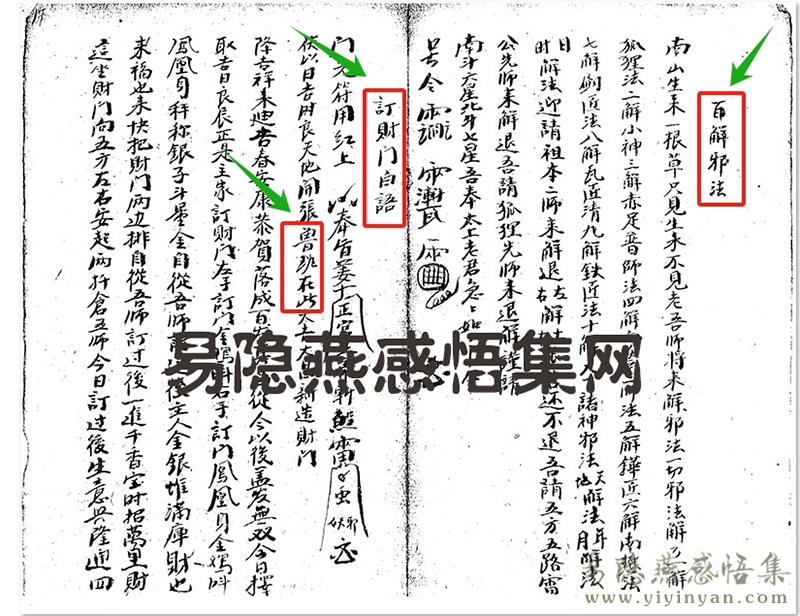 百解邪法
南山生来一根草只見生来不見老吾师將来解邪法一切邪法解了一解
狐狸法二解小神三解赤足普師法四解師法五解鏵匠六解南
七解劍匠法八解瓦匠清九解鉄匠法十解諸神邪法天地解法年月解法
日时解法迎請祖本二师来解退左解右还不退吾請五方五路雷
公先师来解退吾請狐狸先师来退解謹請
南斗六星北斗七星吾奉太上老君急
号令
訂財門白語
門光符用紅上 以奉旨姜子正
伏以日吉時良天地開張魯班在此大吉大昌新造財門
降吉祥来迪吉春安康恭賀落成百從今以後盖处無双今日擇
取吉日良辰正是主家訂財門左手訂右手訂門鳳凰身金鷄叫
鳳凰身秤称銀子斗量金自從吾师主人金銀堆滿庫財也
来福也来快把財門两边排自從吾师訂过後一進千香宝时招萬里財
這坐財門向五方左右安起两行倉吾师今日訂过後生意兴隆通四
易隐燕感悟集网
易隐燕感悟集
www.yiyinyan.com